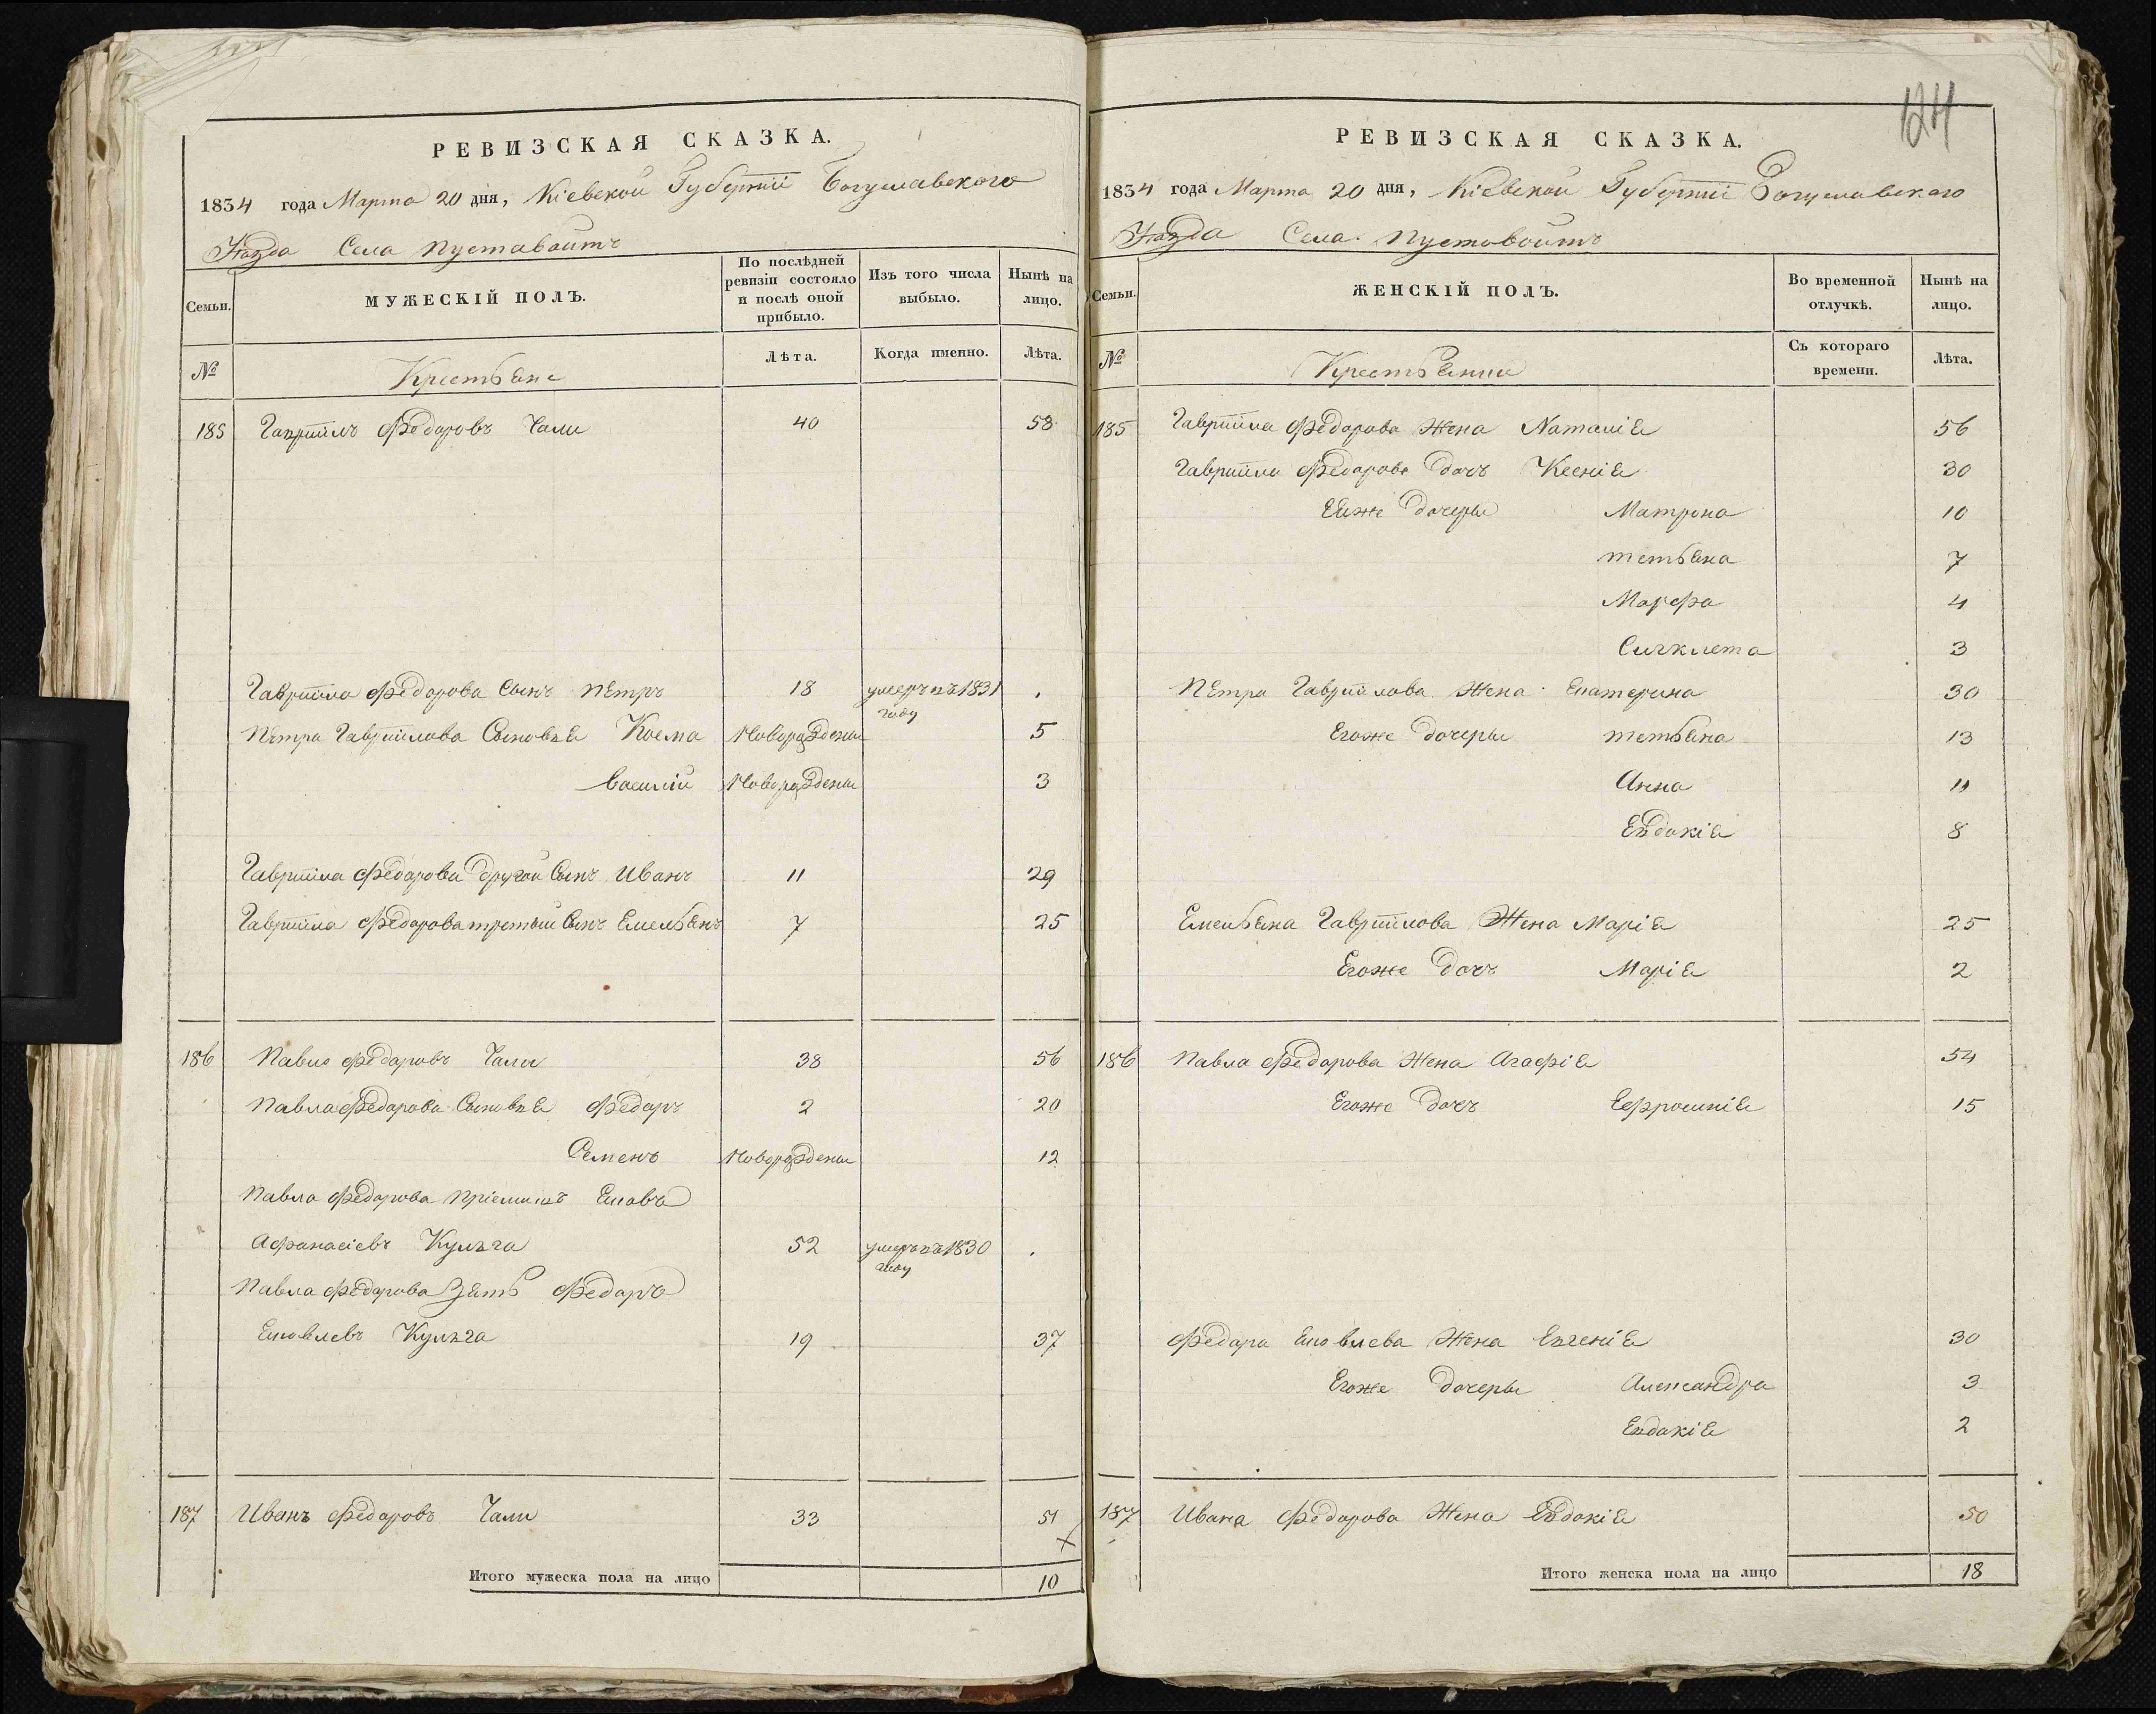 РЕВИЗСКАЯ СКАЗКА.
1834 года Марта 20 дня, Кіевской Губерніи Богуславского
Уѣзда Села Пуставойтъ
Семьи.
МУЖЕСКІЙ ПОЛЪ.
По послѣдней ревизіи состояло и послѣ оной прибыло.
Изъ того числа выбыло.
Нынѣ на лицо.
№
Крестьяне
Лѣта.
Когда именно.
Лѣта.
185 Гавріилъ Федоровъ Чали 40 58
Гавріила Федорова Сынъ Петръ 18 умеръ въ 1831 году
Петра Гавріилова Сыновья Косма Новорожденъ 5
Василій Новорожденъ 3
Гавріила Федорова другой Сынъ Иванъ 11 29
Гавріила Федорова третьій Сынъ Емельянъ 7 25
186 Павло Федоровъ Чали 38 56
Павла Федорова Сыновья Федаръ 2 20
Семенъ Новорожденъ 12
Павла Федорова пріемышъ Яковъ
Афанасіевъ Кулѣга 52 умеръ въ 1830 году
Павла Федорова Зять Федаръ
Яковлевъ Кулѣга 19 37
187 Иванъ Федоровъ Чали 33 51
Итого мужеска пола на лицо 10
124
РЕВИЗСКАЯ СКАЗКА.
1834 года Марта 20 дня, Кіевской Губерніи Богуславского
Уѣзда Села Пустовойтъ
Семьи.
ЖЕНСКІЙ ПОЛЪ.
Во временной отлучкѣ.
Нынѣ на лицо.
№
Крестьянки
Съ котораго времени.
Лѣта.
185 Гавріила Федорова Жена Наталія 56
Гавріила Федорова дочъ Ксенія 30
Еяже дочеры Матрона 10
Тетьяна 7
Марфа 4
3
Петра Гавріилова Жена Екатерина 30
Егоже дочеры Тетьяна 13
Анна 11
Евдокія 8
Емельяна Гавріилова Жена Марія 25
Егоже дочъ Марія 2
186 Павла Федорова Жена Агафія 54
Егоже дочъ Ефросинія 15
Федара Яковлева Жена Евгенія 30
Егоже дочеры Александра 3
Евдакія 2
187 Ивана Федорова Жена Евдокія 50
Итого женска пола на лицо 18